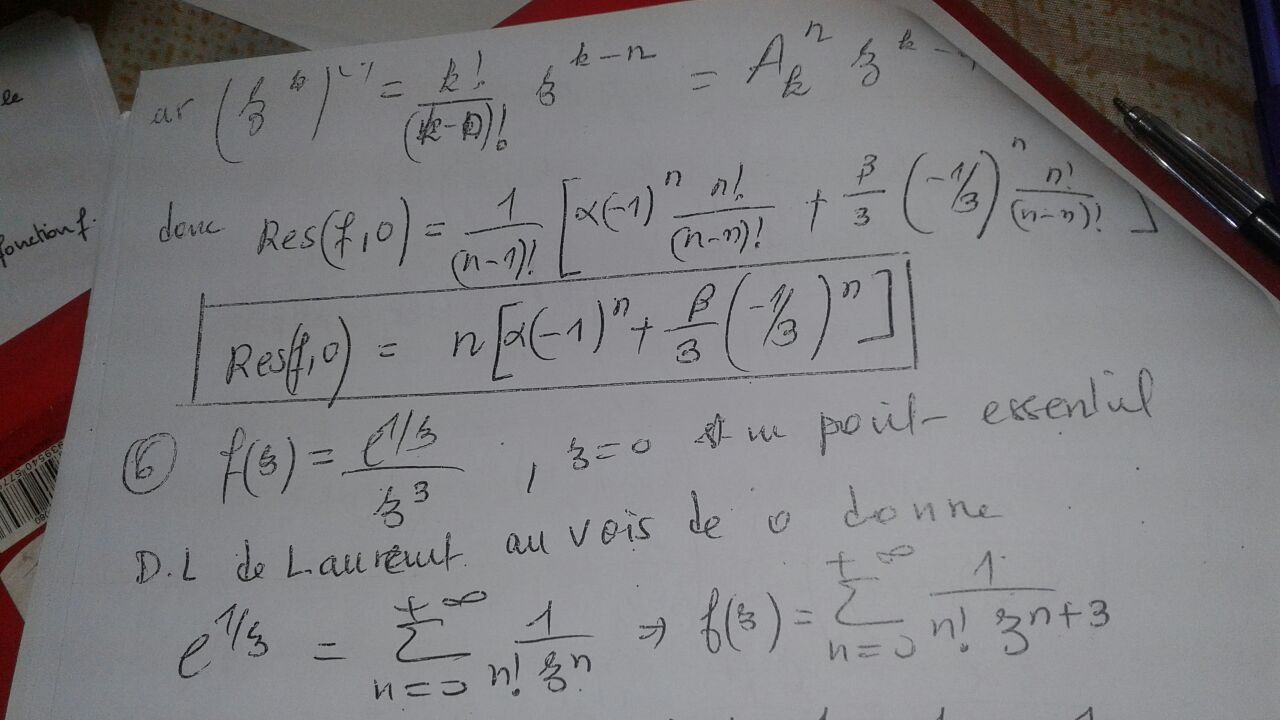 ar (z^k)^(n) = k!/(k-n)! z^(k-n) = A_k^n z^k-
le
fonction f.
donc Res(f,0) = 1/(n-1)! [α(-1)^n n!/(n-n)! + β/3 (-1/3)^n n!/(n-n)!]
Res(f,0) = n[α(-1)^n + β/3 (-1/3)^n]
⑥ f(z) = e^(1/z)/z^3 , z=0 est un point essentiel
D.L de Laurent au vois de 0 donne
e^(1/z) = Σ_(n=0)^(+∞) 1/(n! z^n) ⇒ f(z) = Σ_(n=0)^(+∞) 1/(n! z^(n+3))